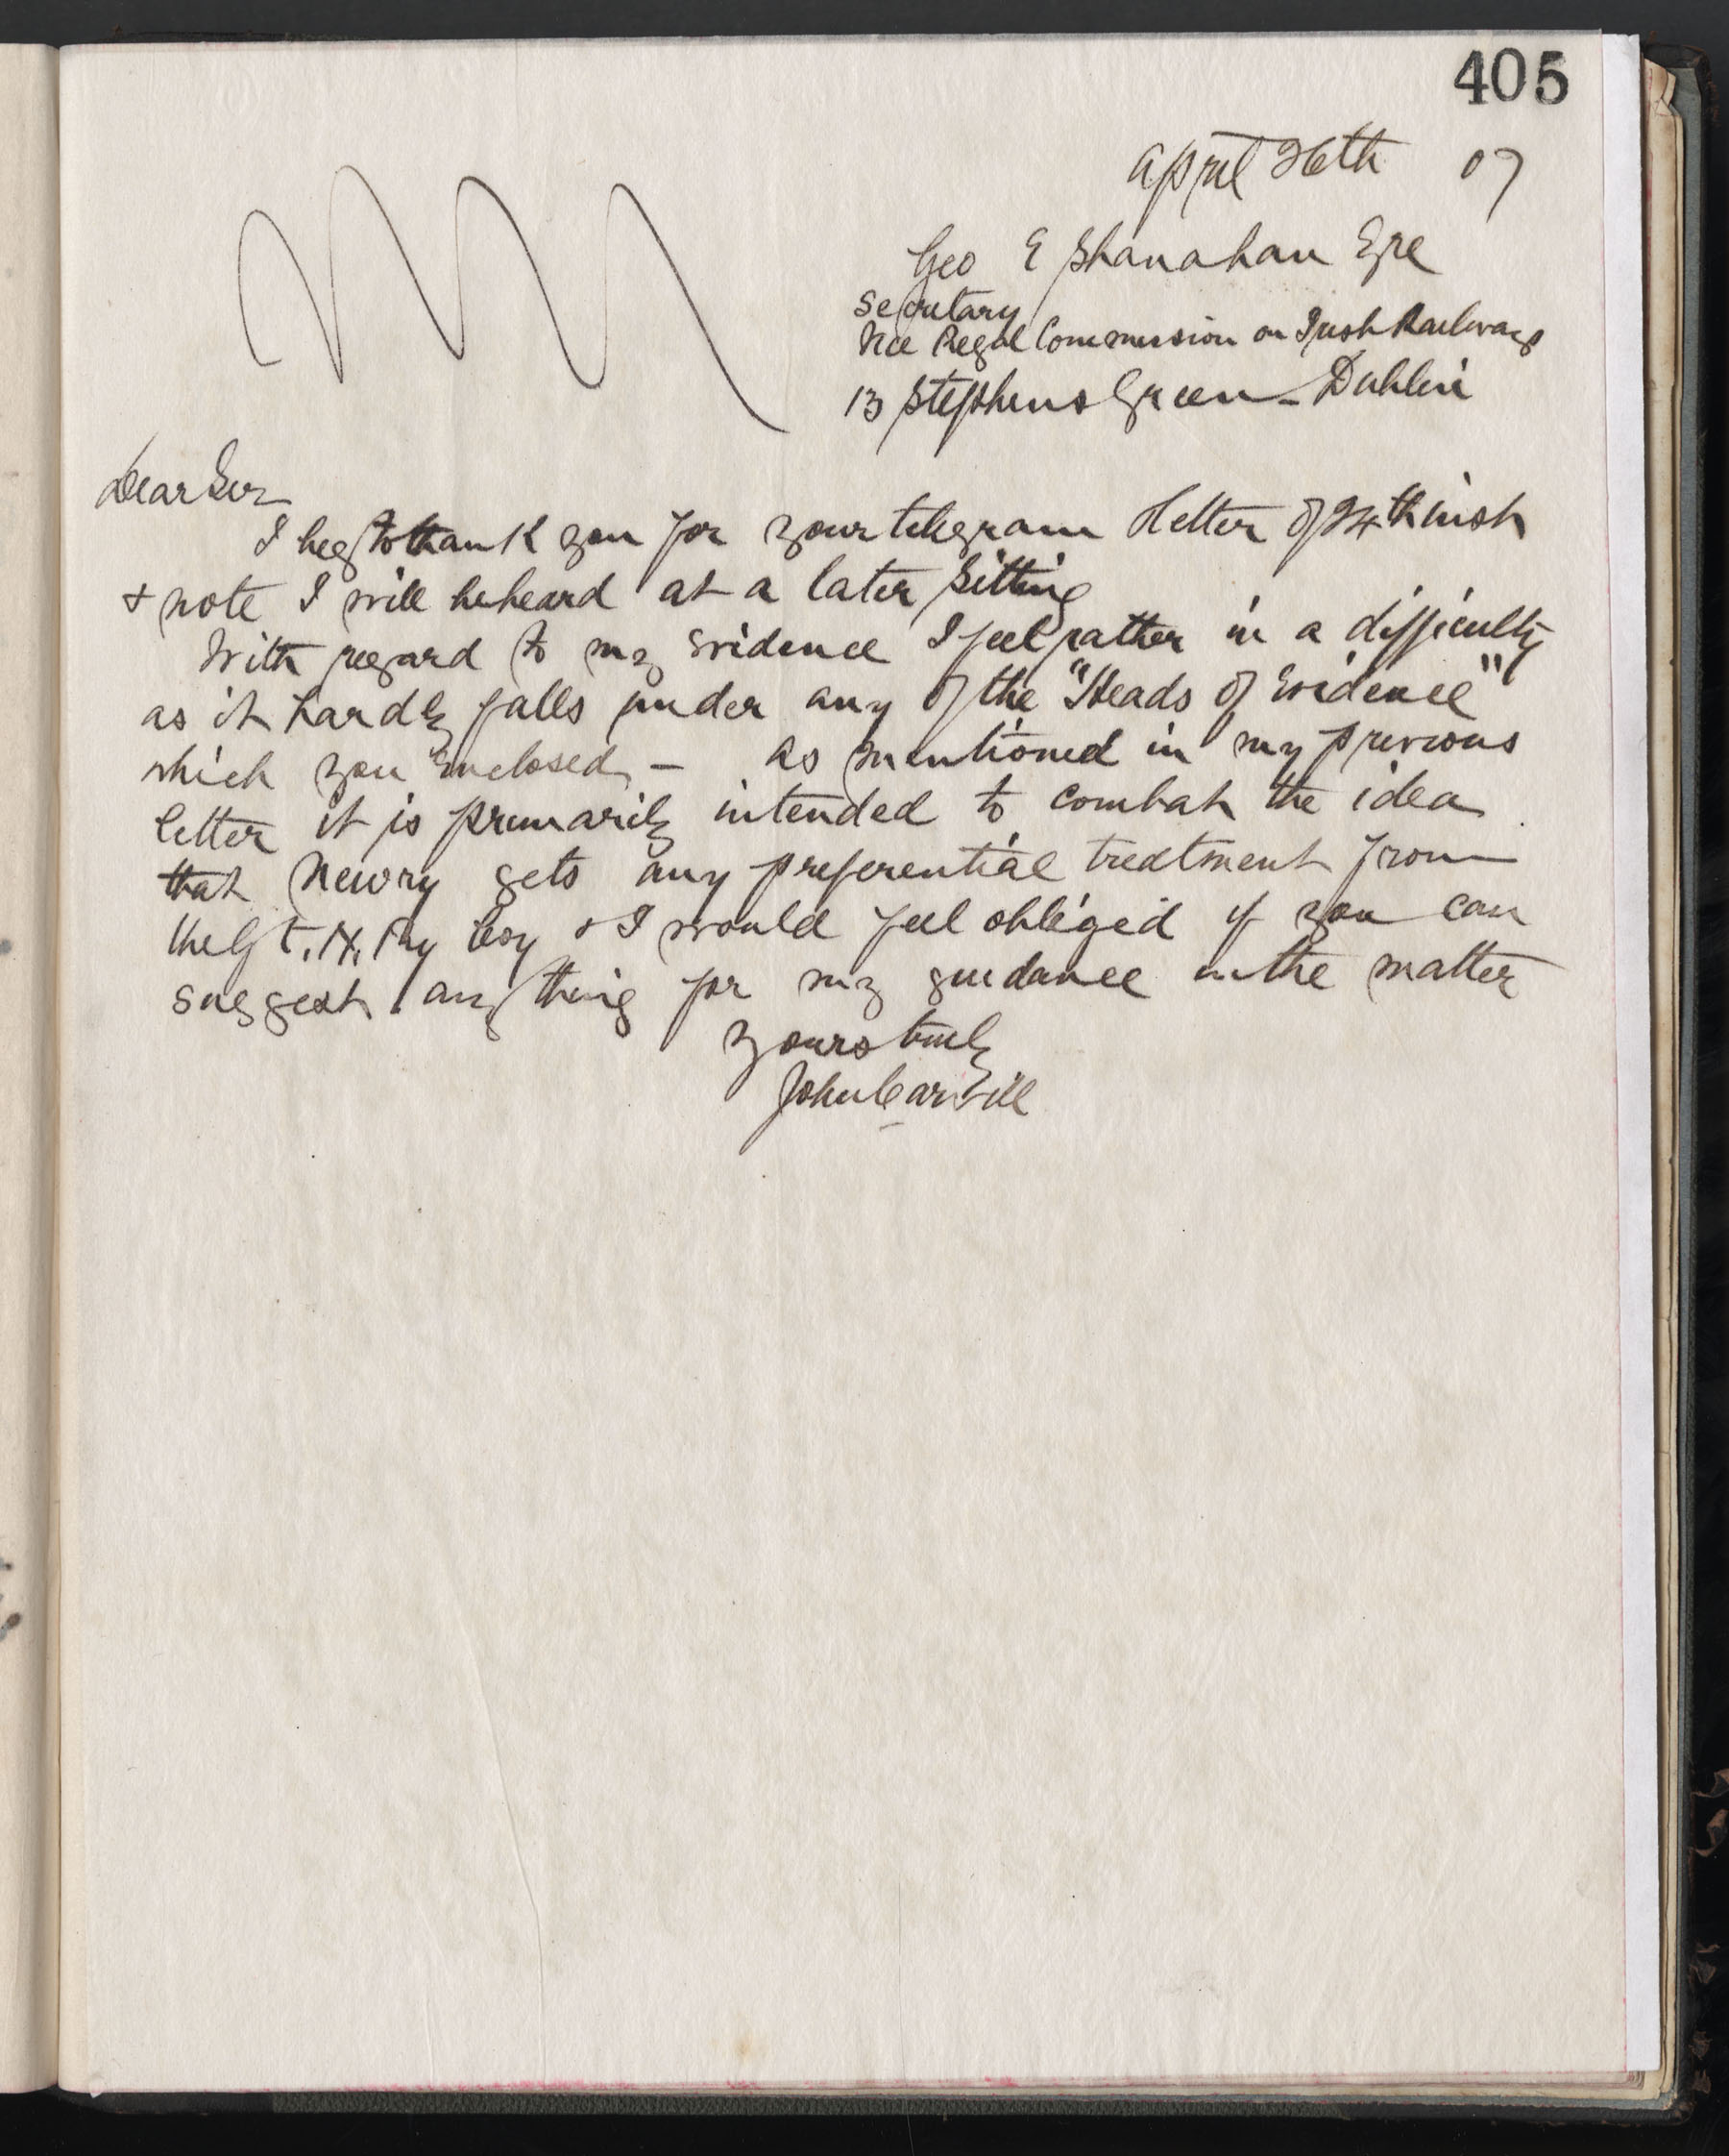 405
April 26th 07
Geo E Shanahan Esqe
Secretary
Vice Regal Commission on Irish Railways
13 Stephens Green - Dublin
Dear Sir
I beg to thank you for your telegram & letter of 24th inst
& note I will be heard at a later sitting
With regard to my evidence I feel rather in a difficulty
as it hardly falls under any of the "Heads of Evidence"
which you enclosed - As mentioned in my previous
letter it is primarily intended to combat the idea
that Newry gets any preferential treatment from
the Gt. N. Ry Coy & I would feel obliged if you can
suggest anything for my guidance in the matter
Yours truly
John Carvill